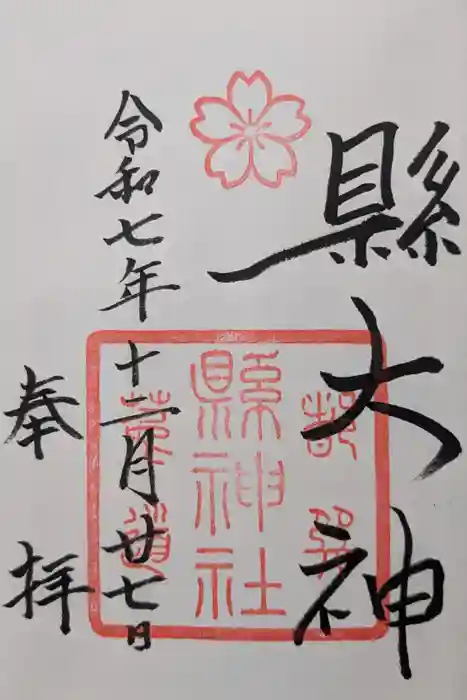 縣大神
令和七年十二月廿七日
奉拝
縣神社